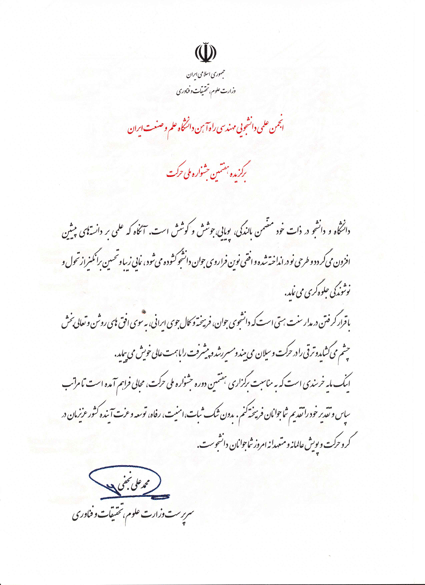 جمهوری اسلامی ایران
وزارت علوم، تحقیقات و فناوری
انجمن علمی دانشجویی مهندسی راه آهن دانشگاه علم و صنعت ایران
برگزیده هفتمین جشنواره ملی حرکت
دانشگاه و دانشجو در ذات خود متضمن بالندگی، پویایی، جوشش و کوشش است. آنگاه که علمی بر دانسته‌های پیشین
افزون می گردد و طرحی نو در انداخته شده و افقی نوین فراروی جوان دانشجو گشوده می شود، نمایی زیبا و تحسین برانگیز از تحول و
نوشوندگی جلوه گری می نماید.
با قرار گرفتن در مدار سنت هستی است که دانشجوی جوان، فریخته و کمال جوی ایرانی، به سوی افق های روشن و تعالی بخش
چشم می گشاید و ترقی را در حرکت و سیلان می بیند و مسیر رشد و پیشرفت را با همت عالی خویش می پیماید.
اینک مایه خرسندی است که به مناسبت برگزاری هفتمین دوره جشنواره ملی حرکت، مجالی فراهم آمده است تا مراتب
سپاس و تقدیر خود را تقدیم شما جوانان فریخته کنم. بدون شک ثبات، امنیت، رفاه، توسعه و عزت آینده کشور عزیزمان در
گرو حرکت و پویش عالمانه و متعهدانه امروز شما جوانان دانشجوست.
محمد علی نجفی
سرپرست وزارت علوم، تحقیقات و فناوری